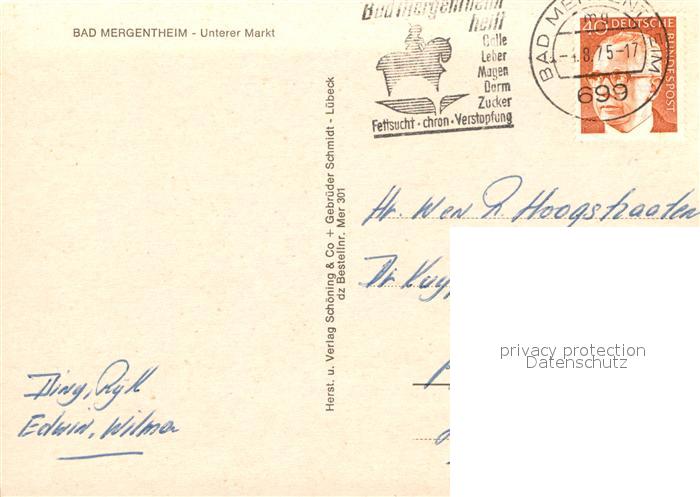 BAD MERGENTHEIM - Unterer Markt
Bad Mergentheim
heilt
Galle
Leber
Magen
Darm
Zucker
Fettsucht · chron · Verstopfung
BAD MERGENTHEIM
8.75-17
699
40 DEUTSCHE
BUNDESPOST
Herst. u. Verlag Schöning & Co + Gebrüder Schmidt - Lübeck
dz Bestellnr. Mer 301
Hr. Wen R. Hoogstraaten
Dr Kuyp
privacy protection
Datenschutz
Edwin, Wilma